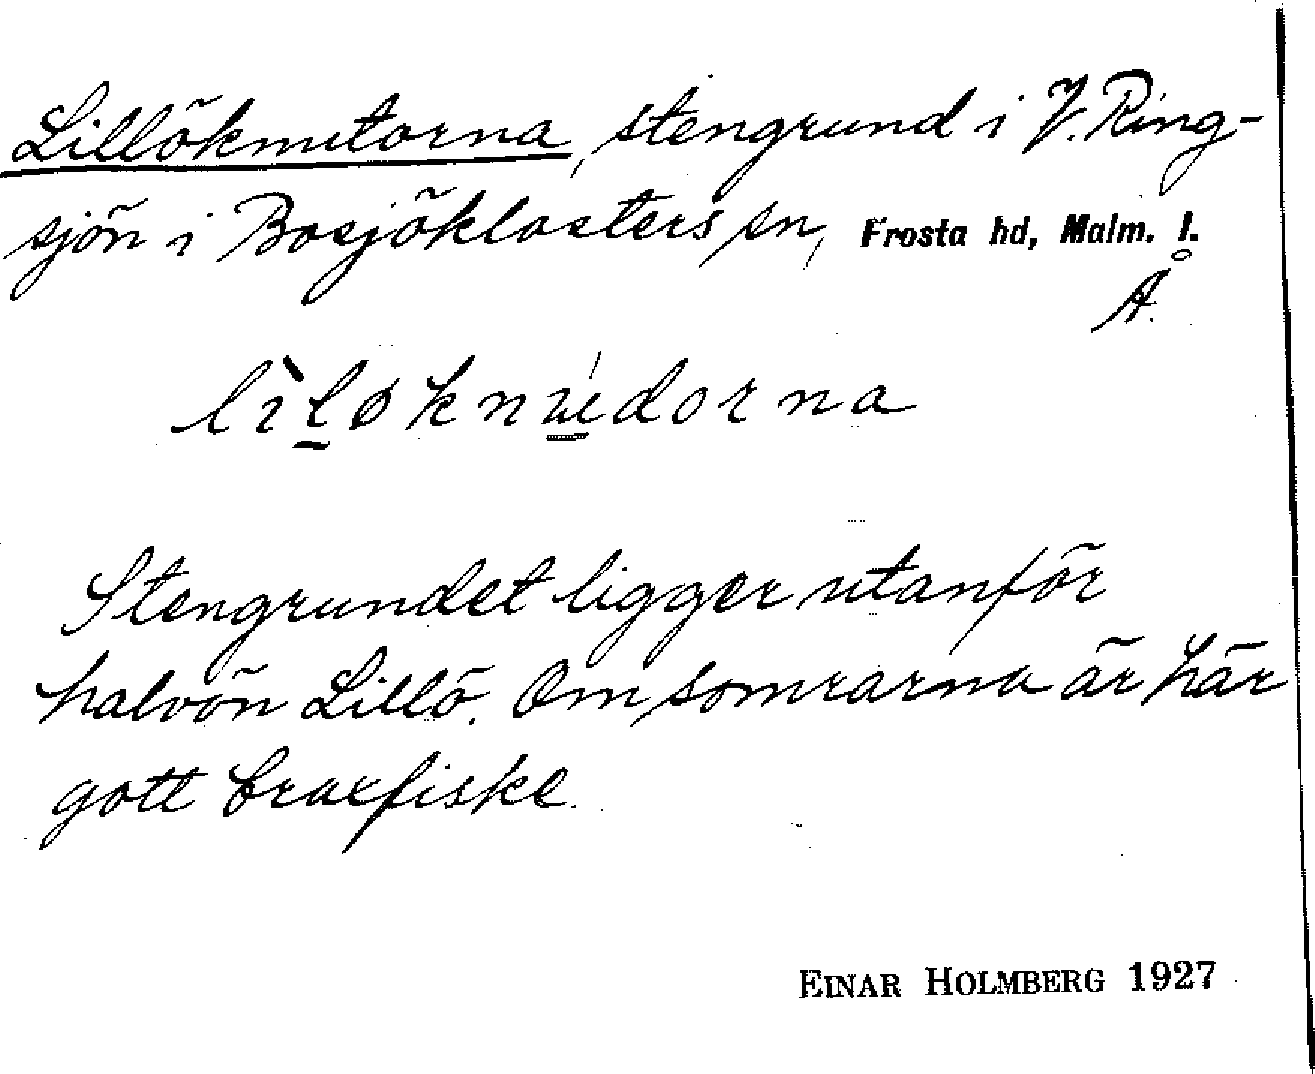 Lilløknutorna, stengrund i V. Ring-
sjön i Bosjöklosters sn, Frosta hd, Malm. l.
Å.
lìløknúdorna
Stengrundet ligger utanför
halvön Lillö. Om somrarna är här
gott braxfiske.
EINAR HOLMBERG 1927